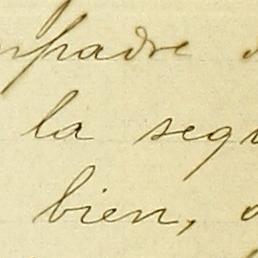 mpadre
la segu
bien,